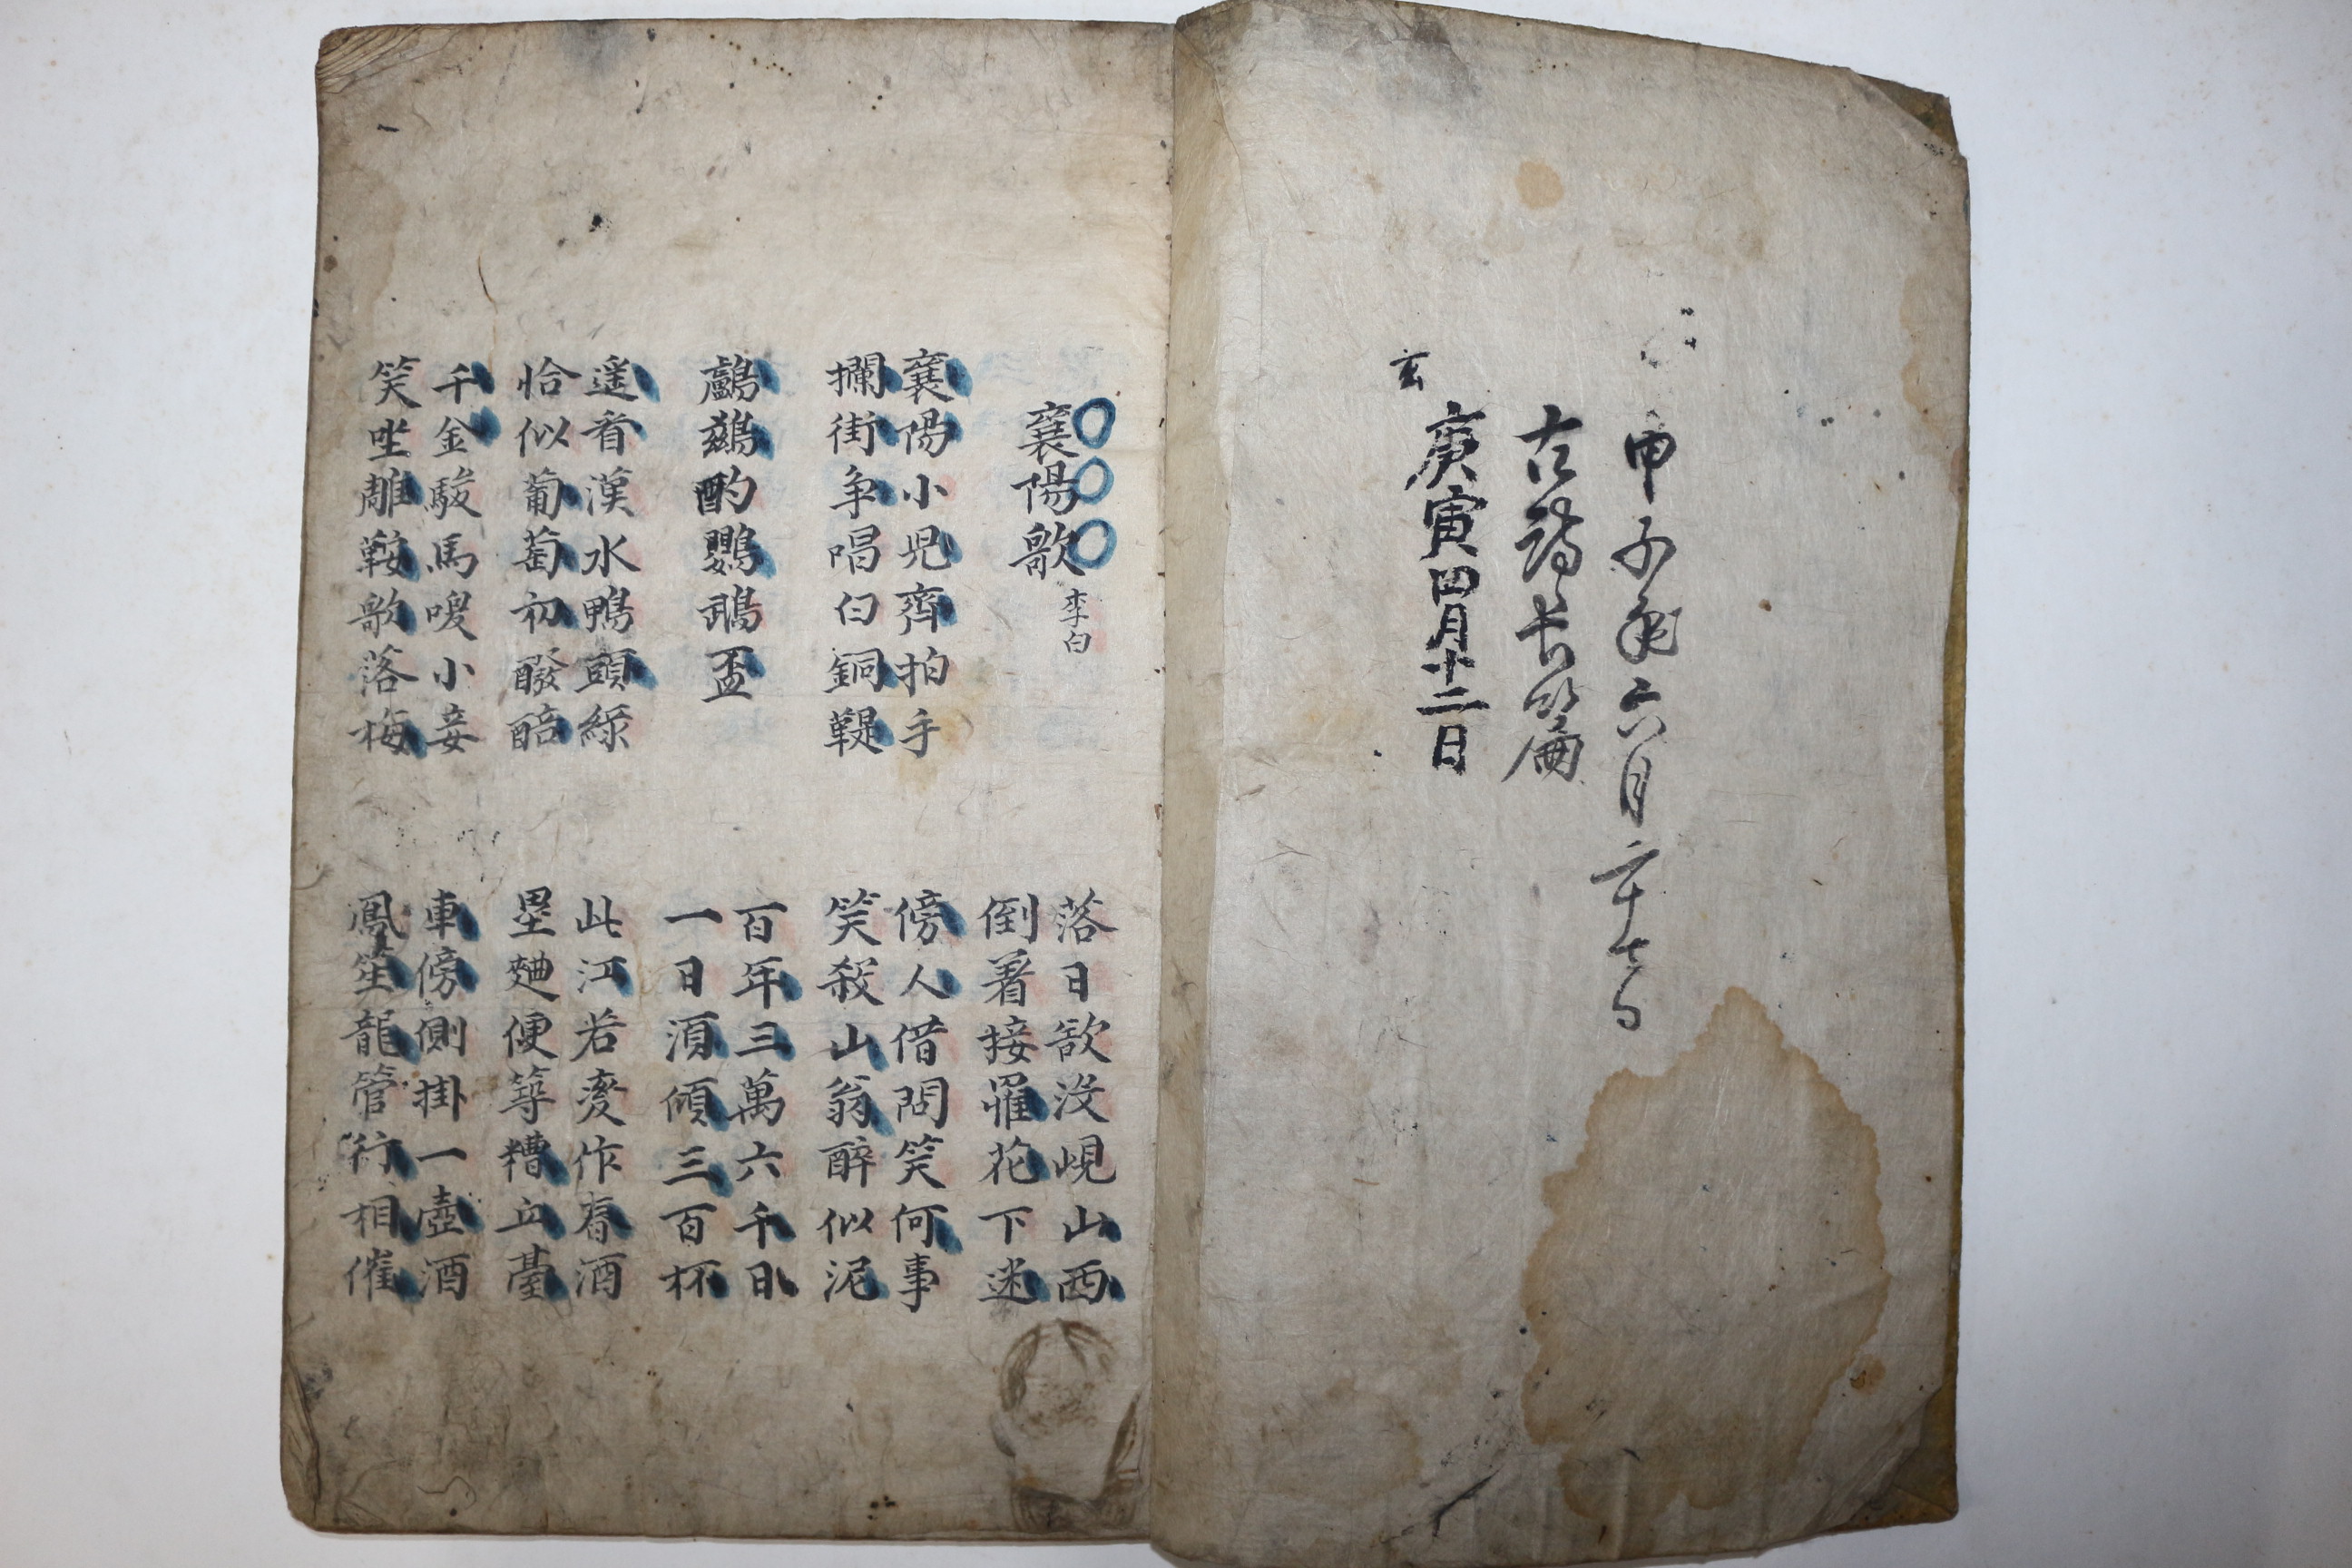 甲子年六月二十七日
古詩長篇
庚寅四月十二日
玄
襄陽歌 李白
落日欲没峴山西
倒着接罹花下迷
襄陽小児齊拍手
攔街争唱白銅鞮
傍人借問笑何事
笑殺山翁醉似泥
鸕鶿酌鸚鵡盃
百年三萬六千日
一日湏傾三百杯
遥看漢水鴨頭綠
恰似葡萄初醱醅
此江若変作春酒
壘麯便築糟丘臺
千金駿馬喚小妾
笑坐雕鞍歌落梅
車傍側掛一壺酒
鳳笙龍管行相催